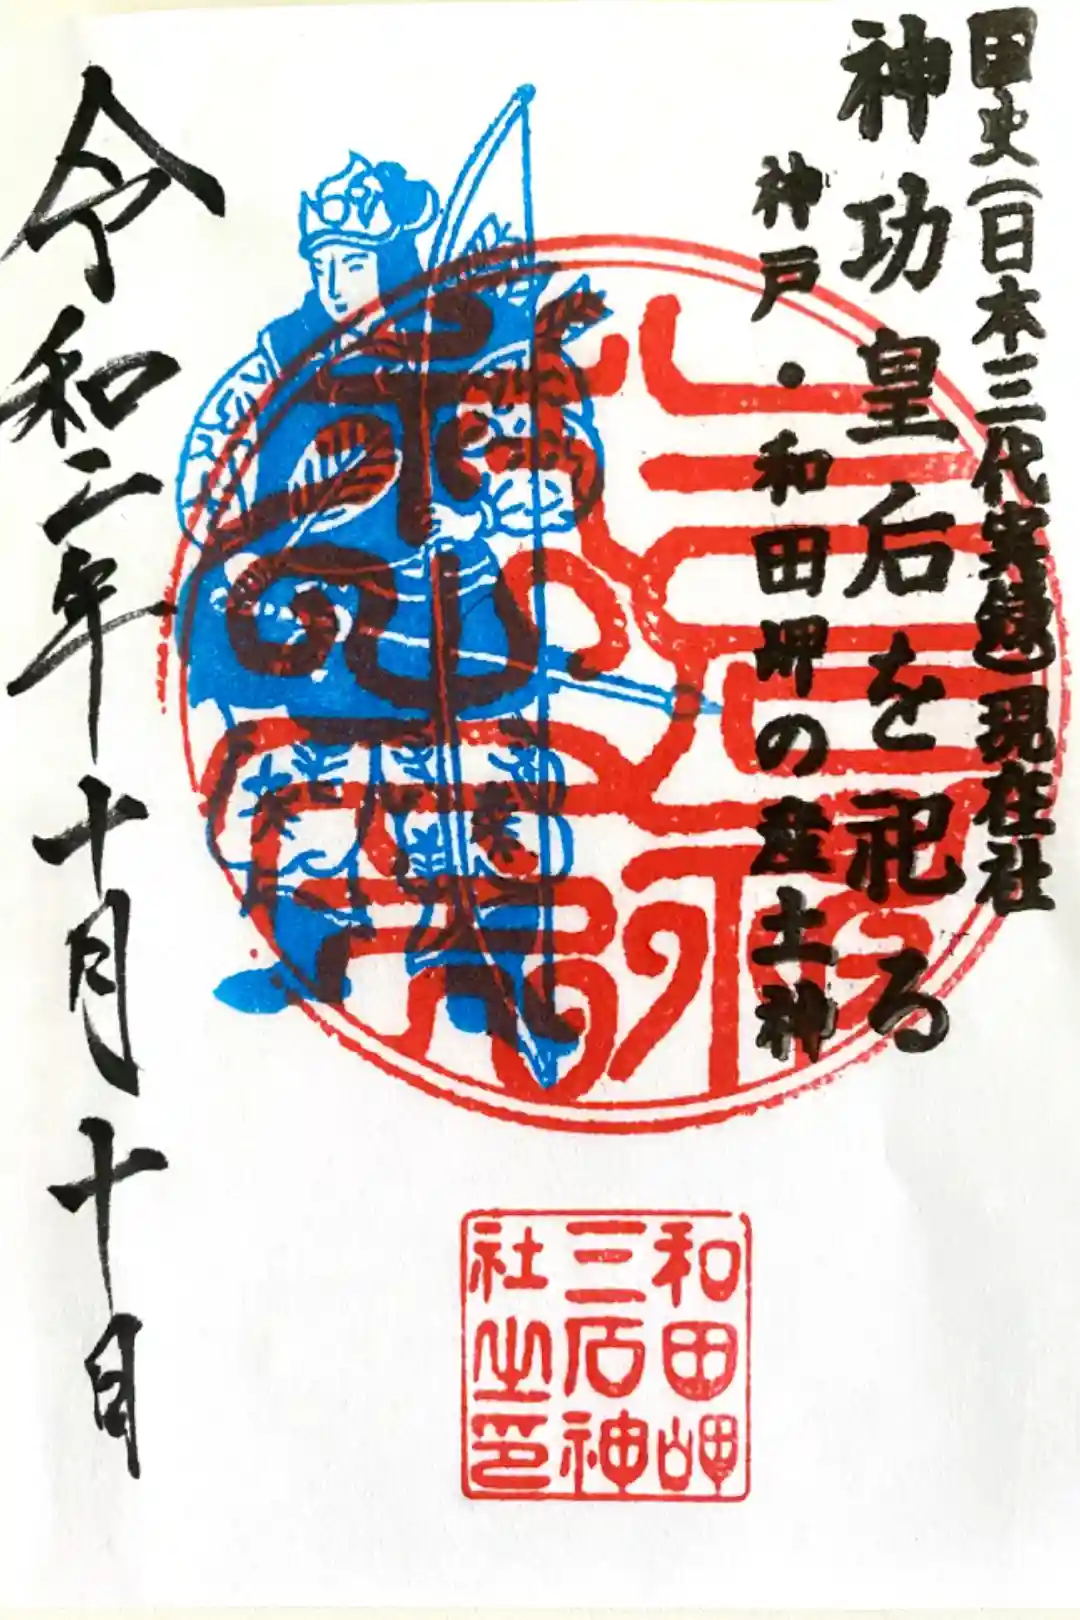 国史(日本三代実録)現在社
神功皇后を祀る
神戸・和田岬の産土神
令和二年十月十日
和田岬
三石神
社之印